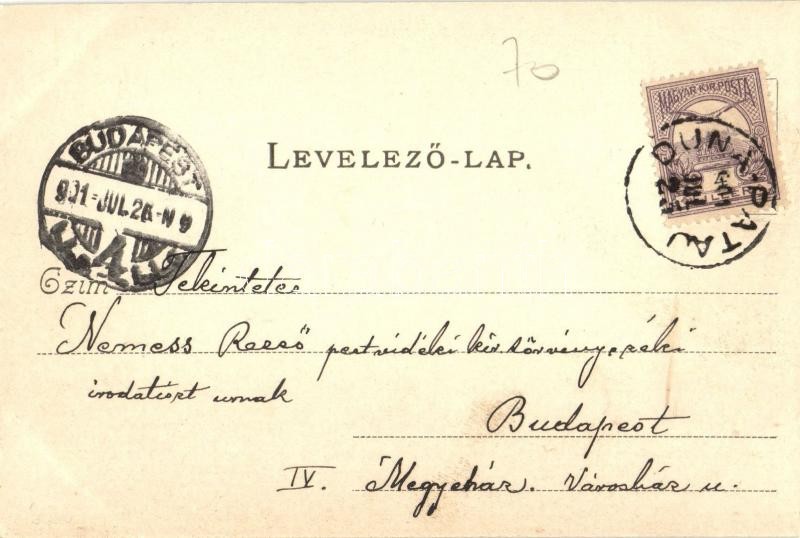 70
MAGYAR KIR. POSTA
DUNAPATAJ
BUDAPEST
901 - JUL. 26 - N 9
LEVELEZŐ-LAP.
Czím Tekintetes
Nemess Rezső pestvidéki kir. törvényszéki
irodatiszt urnak
Budapest
IV. Megyeház. Városház u.